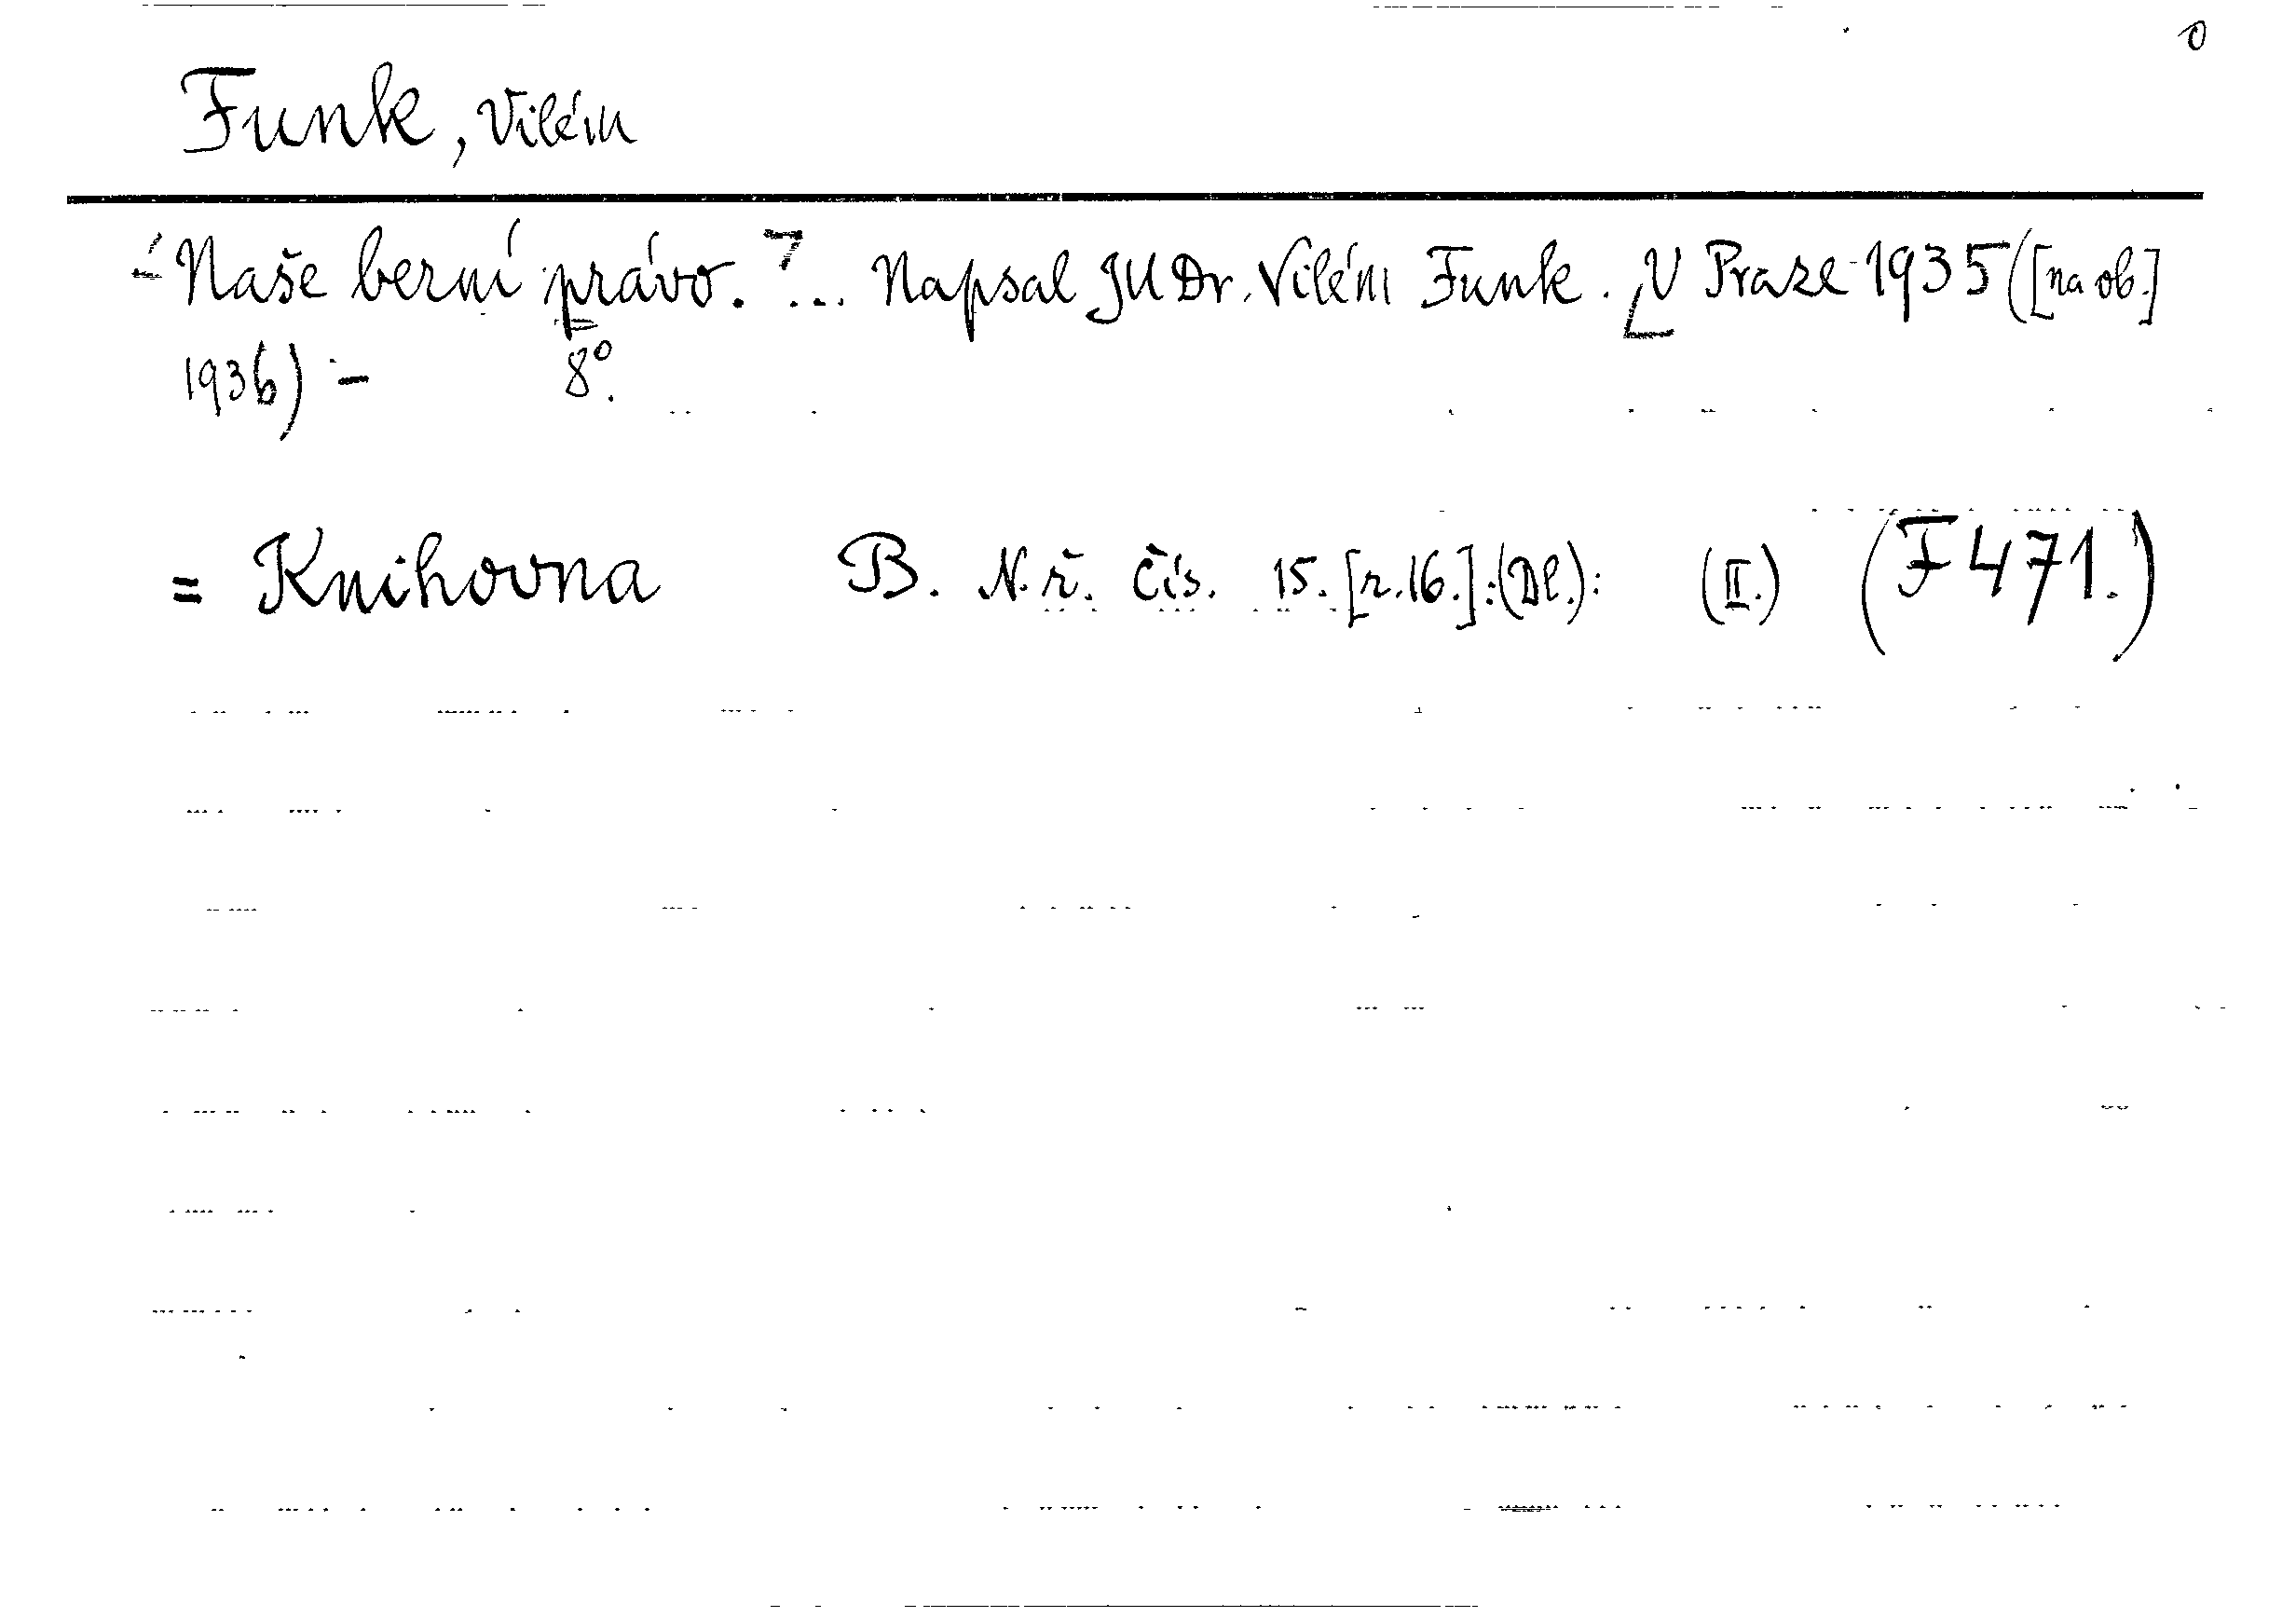 0
Funk, Vilém
Naše berní právo. ... Napsal JUDr. Vilém Funk. V Praze 1935 ([na ob.]
1936) – 8°.
= Knihovna B. N. ř. čís. 15. [r. 16.]:(Dl.): (II.) (F 471.)